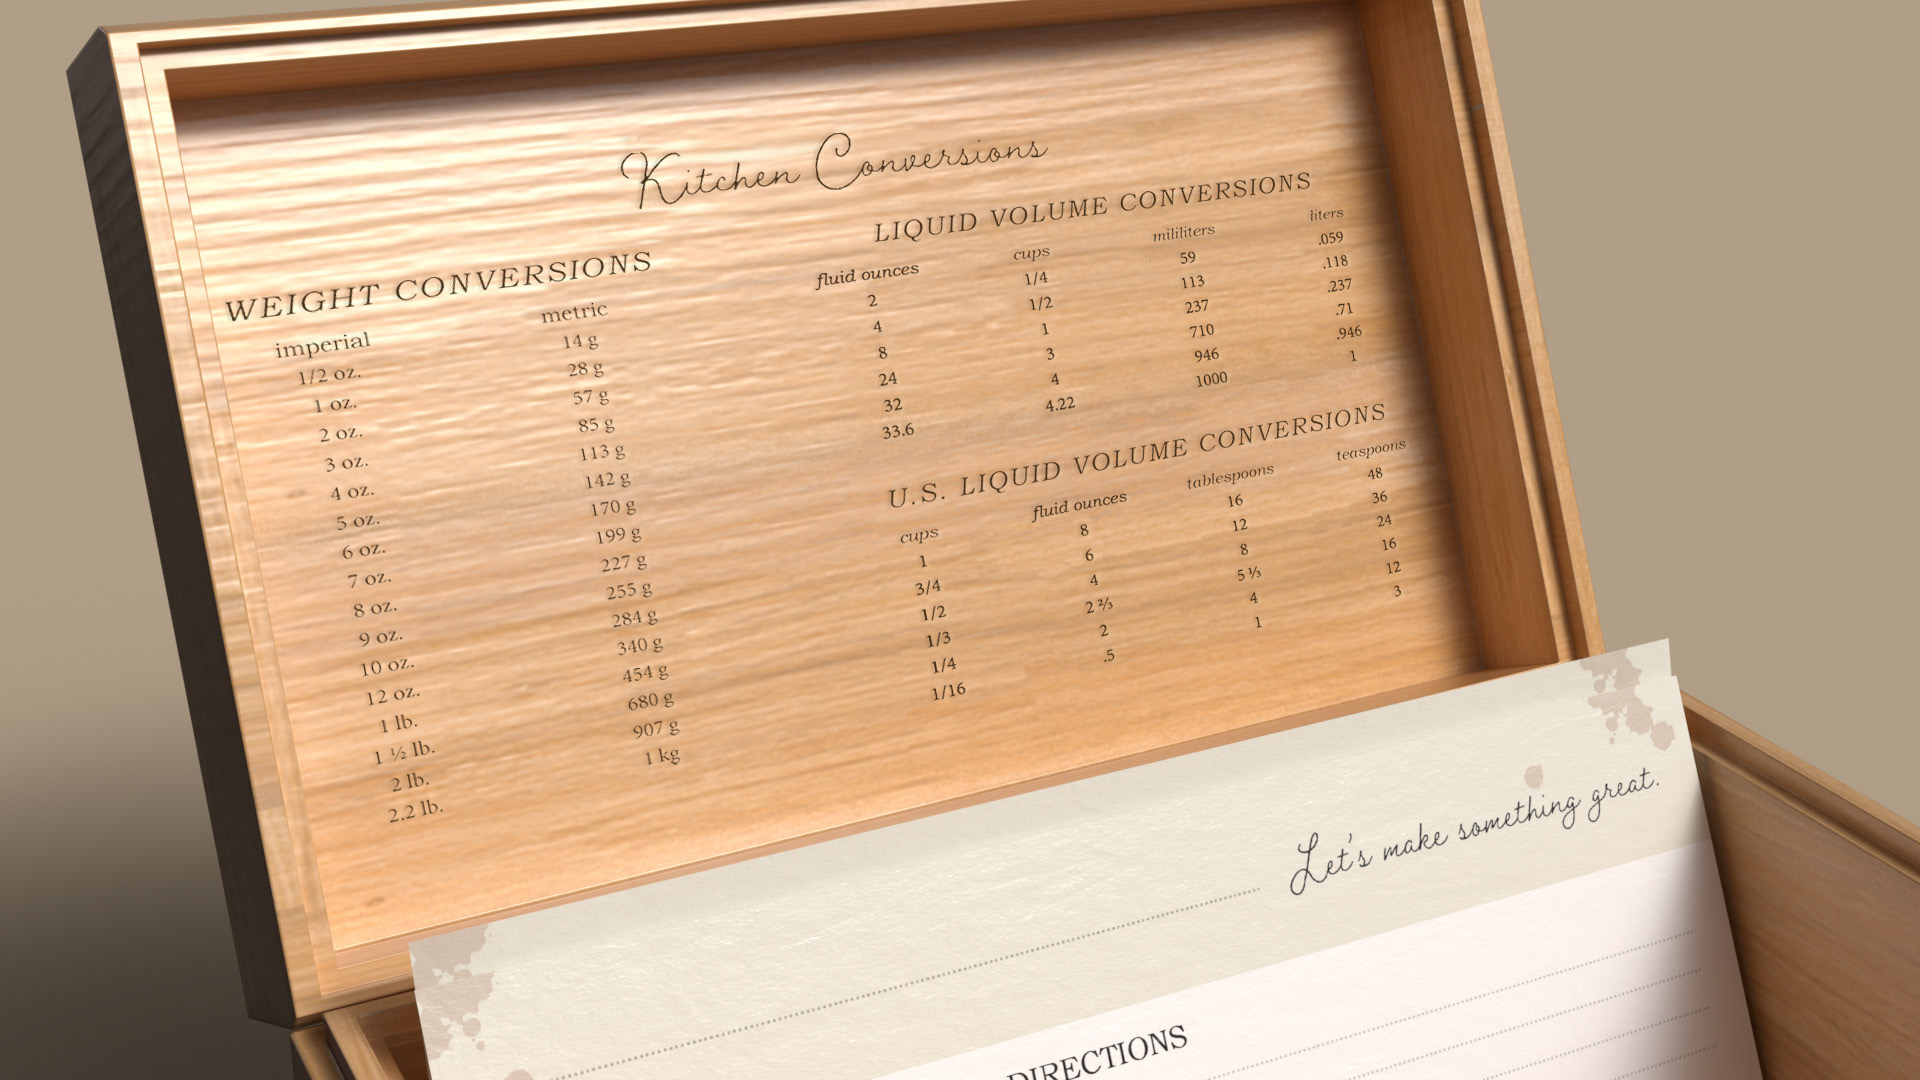 Kitchen Conversions
WEIGHT CONVERSIONS
imperial metric
1/2 oz. 14 g
1 oz. 28 g
2 oz. 57 g
3 oz. 85 g
4 oz. 113 g
5 oz. 142 g
6 oz. 170 g
7 oz. 199 g
8 oz. 227 g
9 oz. 255 g
10 oz. 284 g
12 oz. 340 g
1 lb. 454 g
1 ½ lb. 680 g
2 lb. 907 g
2.2 lb. 1 kg
LIQUID VOLUME CONVERSIONS
fluid ounces cups mililiters liters
2 1/4 59 .059
4 1/2 113 .118
8 1 237 .237
24 3 710 .71
32 4 946 .946
33.6 4.22 1000 1
U.S. LIQUID VOLUME CONVERSIONS
cups fluid ounces tablespoons teaspoons
1 8 16 48
3/4 6 12 36
1/2 4 8 24
1/3 2 ⅔ 5 ⅓ 16
1/4 2 4 12
1/16 .5 1 3
Let's make something great.
DIRECTIONS